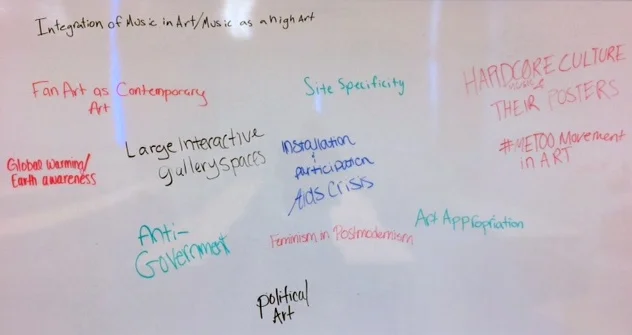 Integration of Music in Art/Music as a high Art
Fan Art as Contemporary
Art
Site Specificity
HARDCORE CULTURE
music &
THEIR POSTERS
#METOO Movement
in ART
Large Interactive
gallery spaces
Installation
&
participation
Aids Crisis
Global Warming/
Earth awareness
Anti-
Government
Feminism in Postmodernism
Art Appropriation
political
Art